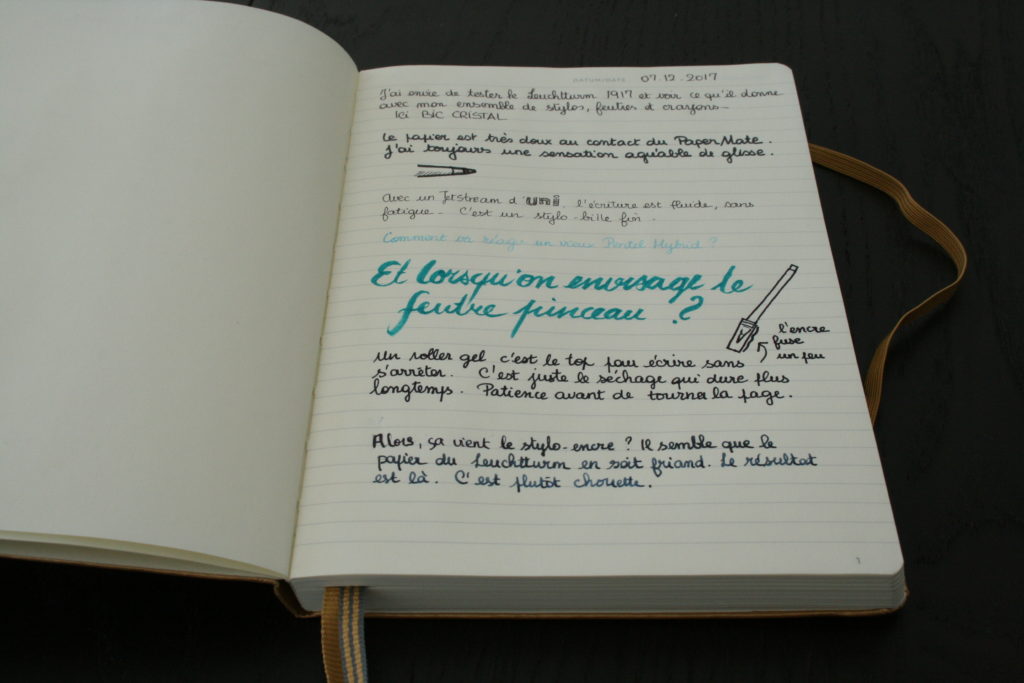 DATUM/DATE 07.12.2017
J'ai envie de tester le Leuchtturm 1917 et voir ce qu'il donne
avec mon ensemble de stylos, feutres et crayons_
Ici BIC CRISTAL
Le papier est très doux au contact du PaperMate.
J'ai toujours une sensation agréable de glisse.
Avec un Jetstream d'uni, l'écriture est fluide, sans
fatigue_ C'est un stylo-bille fin.
Comment va réagir un vieux Pentel Hybrid ?
Et lorsqu'on envisage le
feutre pinceau ?
l'encre
fuse
un peu
Un roller gel c'est le top pour écrire sans
s'arrêter. C'est juste le séchage qui dure plus
longtemps. Patience avant de tourner la page.
Alors, ça vient le stylo-encre ? Il semble que le
papier du Leuchtturm en soit friand. Le résultat
est là. C'est plutôt chouette.
1